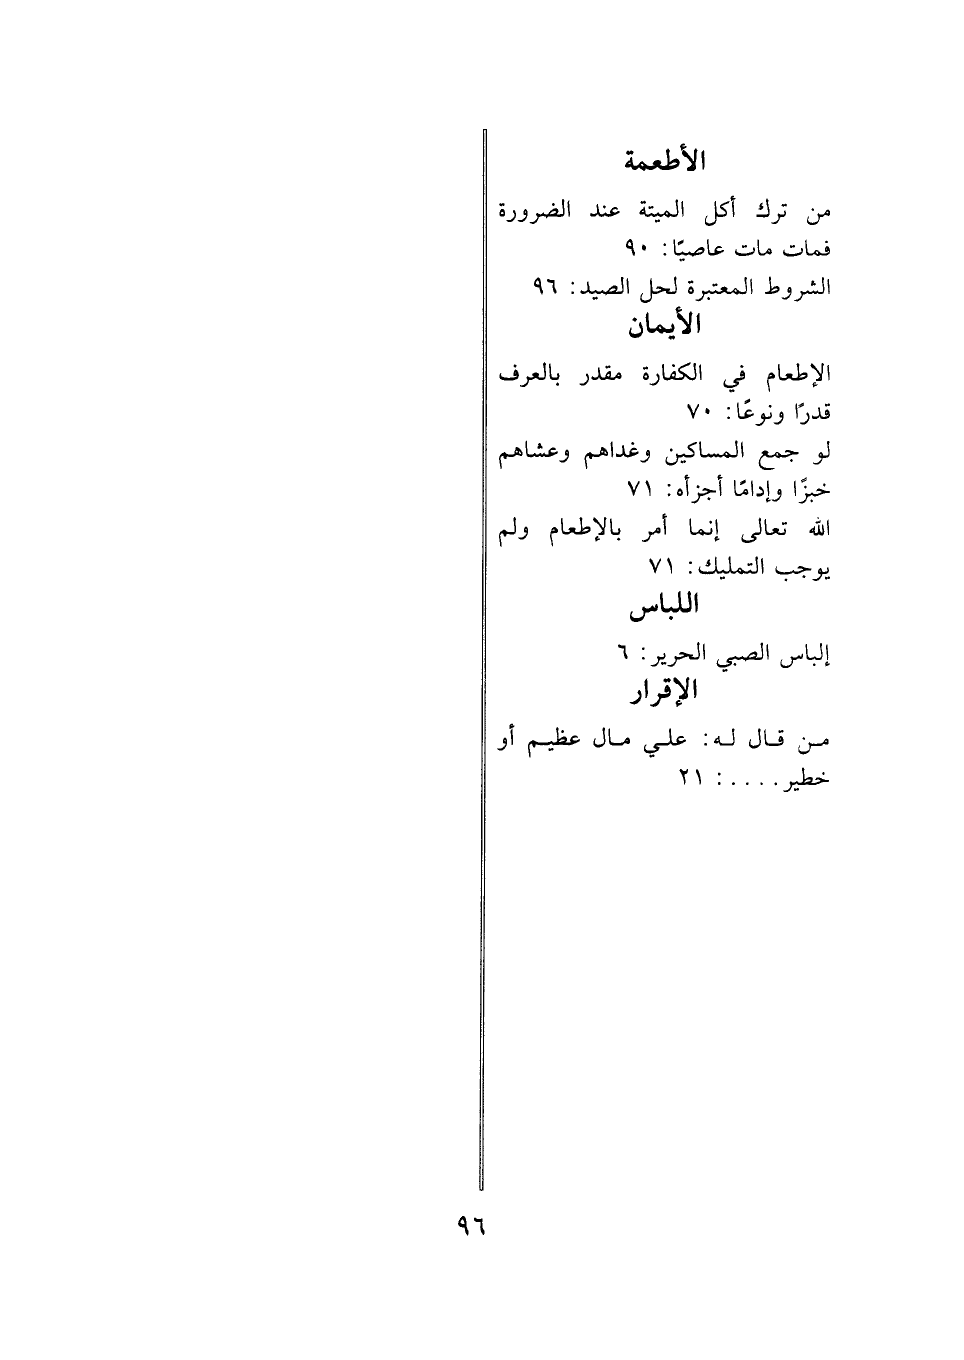 الأطعمة
من ترك أكل الميتة عند الضرورة
فمات مات عاصيًا: ٩٠
الشروط المعتبرة لحل الصيد: ٩٦
الأيمان
الإطعام في الكفارة مقدر بالعرف
قدرًا ونوعًا: ٧٠
لو جمع المساكين وغداهم وعشاهم
خبزًا وإدامًا أجزأه: ٧١
الله تعالى إنما أمر بالإطعام ولم
يوجب التمليك: ٧١
اللباس
إلباس الصبي الحرير: ٦
الإقرار
مـن قـال لـه: علـي مـال عظيـم أو
خطير....: ٢١
٩٦